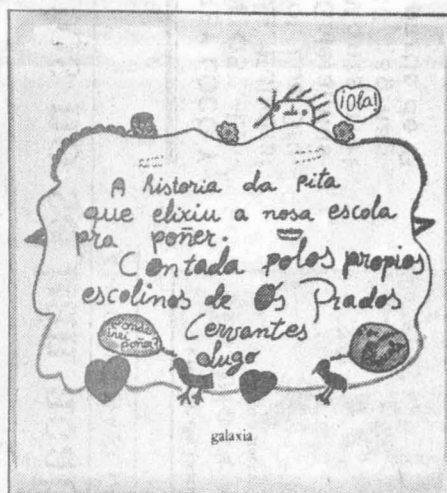 ¡Ola!
A historia da pita
que elixiu a nosa escola
pra poñer.
Contada polos propios
escolinos de Os Prados
Cervantes
Lugo
¿onde
irei
poñer?
galaxia